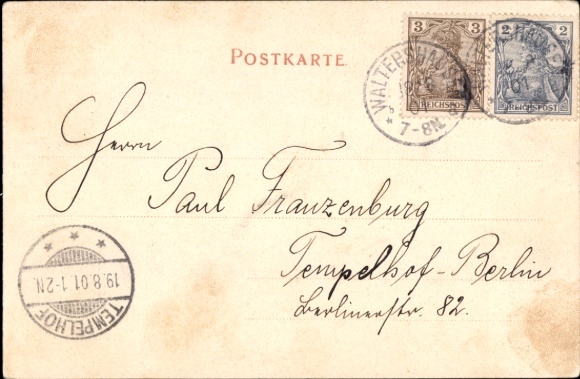 POSTKARTE.
3 3
REICHSPOST
2 2
REICHSPOST
WALTERSHAUSEN
01
* 7-8N.
Herrn
Paul Franzenburg
Tempelhof-Berlin
Berlinerstr. 82.
19.8.01.1-2N.
TEMPELHOF